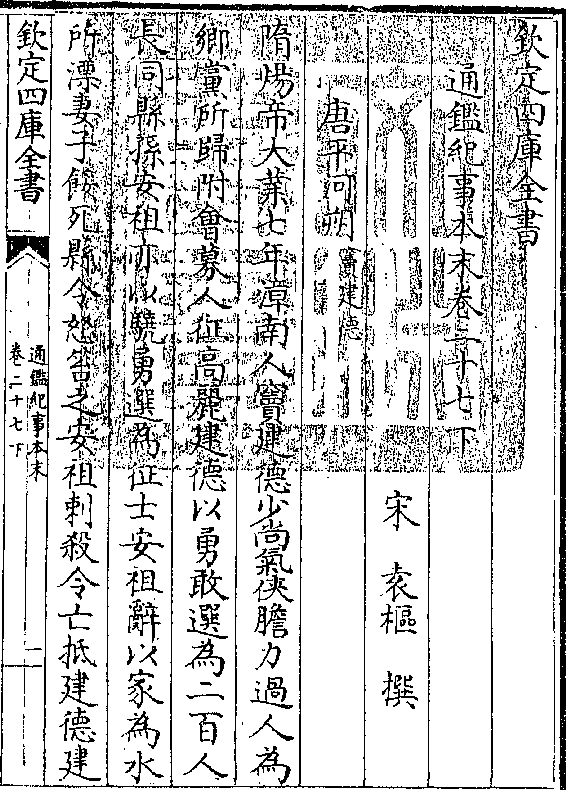 欽定四庫全書
通鑑紀事本末卷二十七下
宋 袁樞 撰
唐平河朔 竇建德
隋煬帝大業七年漳南人竇建德少尚氣俠膽力過人為
鄉黨所歸附會募人征高麗建德以勇敢選為二百人
長同縣孫安祖亦以驍勇選為征士安祖辭以家為水
所漂妻子餒死縣令怒笞之安祖刺殺令亡抵建德建
欽定四庫全書
通鑑紀事本末
卷二十七下
一